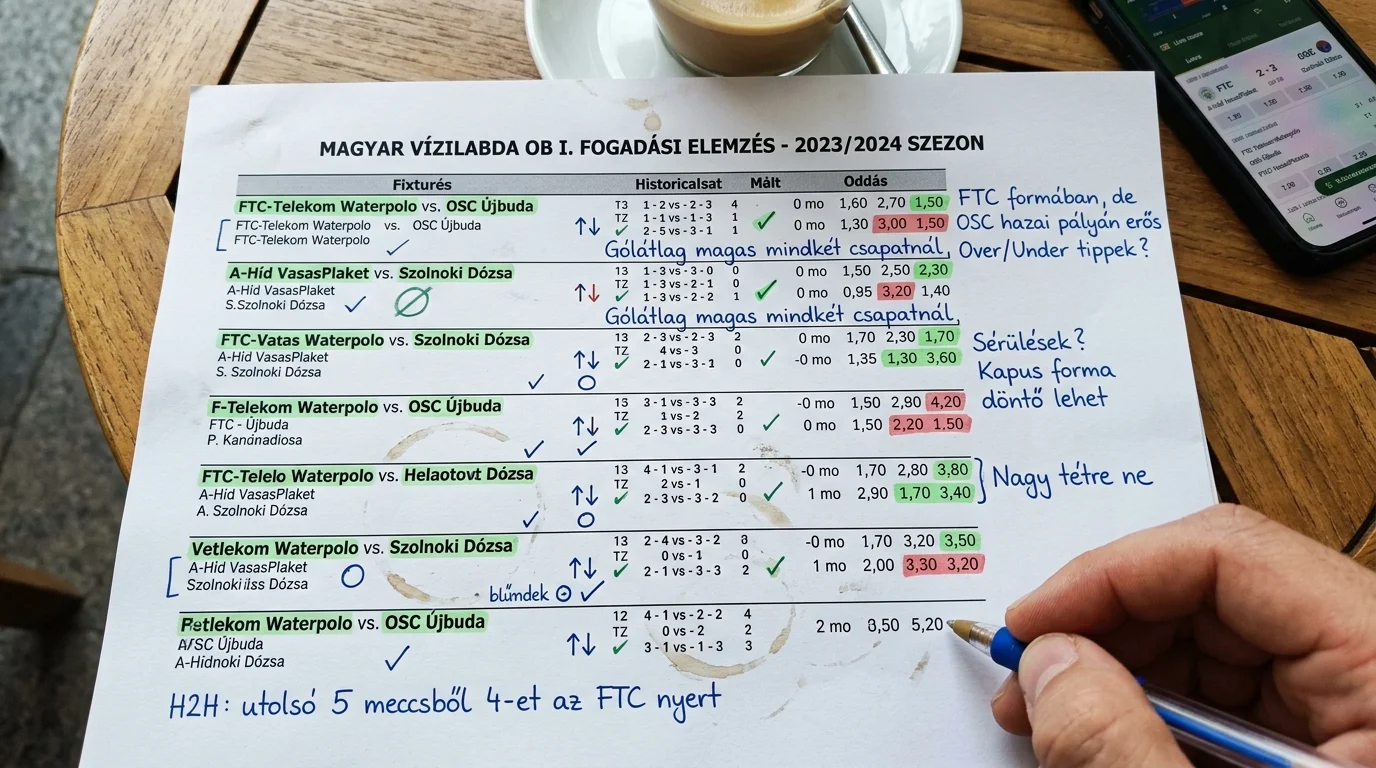 MAGYAR VÍZILABDA OB I. FOGADÁSI ELEMZÉS - 2023/2024 SZEZON
Fixturés Historicalsat Målt Oddás
FTC-Telekom Waterpolo vs. OSC Újbuda T3 1 - 2 vs - 2 - 3 4 0 mo 1,60 2,70 1,50 FTC formában, de
FTC-Telekom Waterpolo vs. OSC Újbuda ↑↓ TZ 1 - 1 vs - 1 - 3 1 ✓ 0 mo 1,30 3,00 1,50 OSC hazai pályán erős
FTC-Telekom Waterpolo ✓ ✓ 2 - 5 vs - 3 - 1 1
Gólátlag magas mindkét csapatnál, Over/Under tippek?
A-Híd VasasPlaket vs. Szolnoki Dózsa 13 1 - 3 vs - 3 - 0 0 0 mo 1,50 2,50 2,30
A-Híd VasasPlaket ↑↓ TZ 1 - 3 vs - 2 - 1 0 ✓ 0 mo 0,95 3,20 1,40
S.Szolnoki Dózsa ✓ ✓ 1 - 3 vs - 2 - 2 1
Gólátlag magas mindkét csapatnál,
FTC-Vatas Waterpolo vs. Szolnoki Dózsa 13 2 - 3 vs - 2 - 3 2 0 mo 1,70 2,30 1,70 Sérülések?
A-Híd VasasPlaket ↑↓ TZ 4 vs - 3 0 ✓ -0 mo 1,35 1,30 3,60 Kapus forma
S. Szolnoki Dózsa ✓ ○ ✓ 2 - 1 vs - 3 - 1 0 döntő lehet
F-Telekom Waterpolo vs. OSC Újbuda 13 3 - 1 vs - 3 - 3 2 -0 mo 1,50 2,90 4,20
FTC - Újbuda ↑↓ TZ 1 vs - 2 2 ✓ 0 mo 1,50 2,20 1,50
P. Kanánadiosa ✓ ✓ ✓ 2 - 3 vs - 3 - 3 0
FTC-Telelo Waterpolo vs. Helaotovt Dózsa 13 4 - 1 vs - 3 - 1 2 -0 mo 1,70 2,80 3,80 Nagy tétre ne
A-Híd VasasPlaket ↑↓ TZ 2 vs - 1 0 ✓ 1 mo 2,90 1,70 3,40
A. Szolnoki Dózsa ✓ ○ ✓ 2 - 3 vs - 3 - 2 0
Vetlekom Waterpolo vs. Szolnoki Dózsa 13 2 - 4 vs - 3 - 2 8 -0 mo 1,70 3,20 3,50
A-Híd VasasPlaket ○ ↑↓ TZ 0 vs - 1 0 ✓ 1 mo 2,00 3,30 3,20
Dózsa ✓ 2 - 1 vs - 3 - 3 2
blűmdek ✓
Waterpolo vs. OSC Újbuda 12 4 - 1 vs - 2 - 2 4 2 mo 5,20
Újbuda ↑↓ TZ 0 vs - 2 2
A-Hidnoki Dózsa ✓ ✓ 3 - 1 vs - 1 - 3 3
H2H: utolsó 5 meccsből 4-et az FTC nyert
FTC 2 - 3